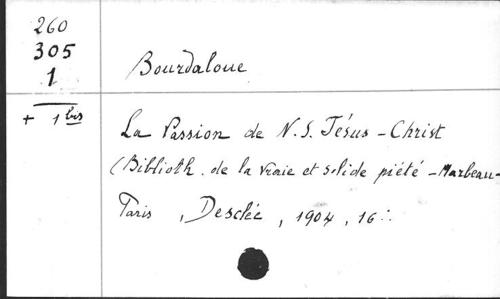 260
305
1
+ 1 bis
Bourdaloue
La Passion de N.S. Jésus-Christ
(Biblioth. de la vraie et solide piété - Marbeau-
Paris, Desclée, 1904, 16: